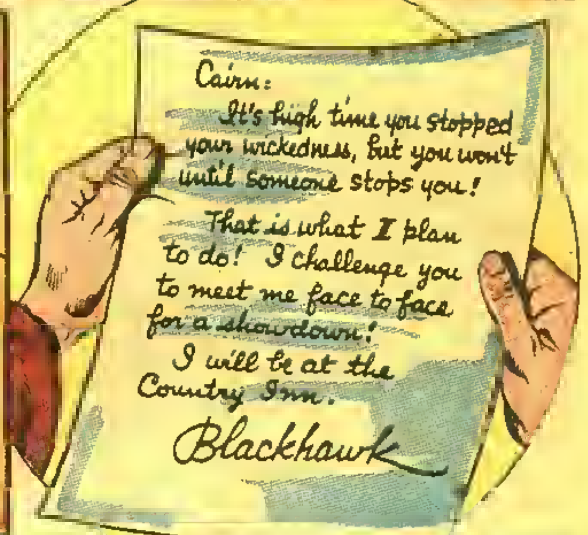 Cairn:
It's high time you stopped
your wickedness, but you won't
until someone stops you!
That is what I plan
to do! I challenge you
to meet me face to face
for a showdown!
I will be at the
Country Inn.
Blackhawk